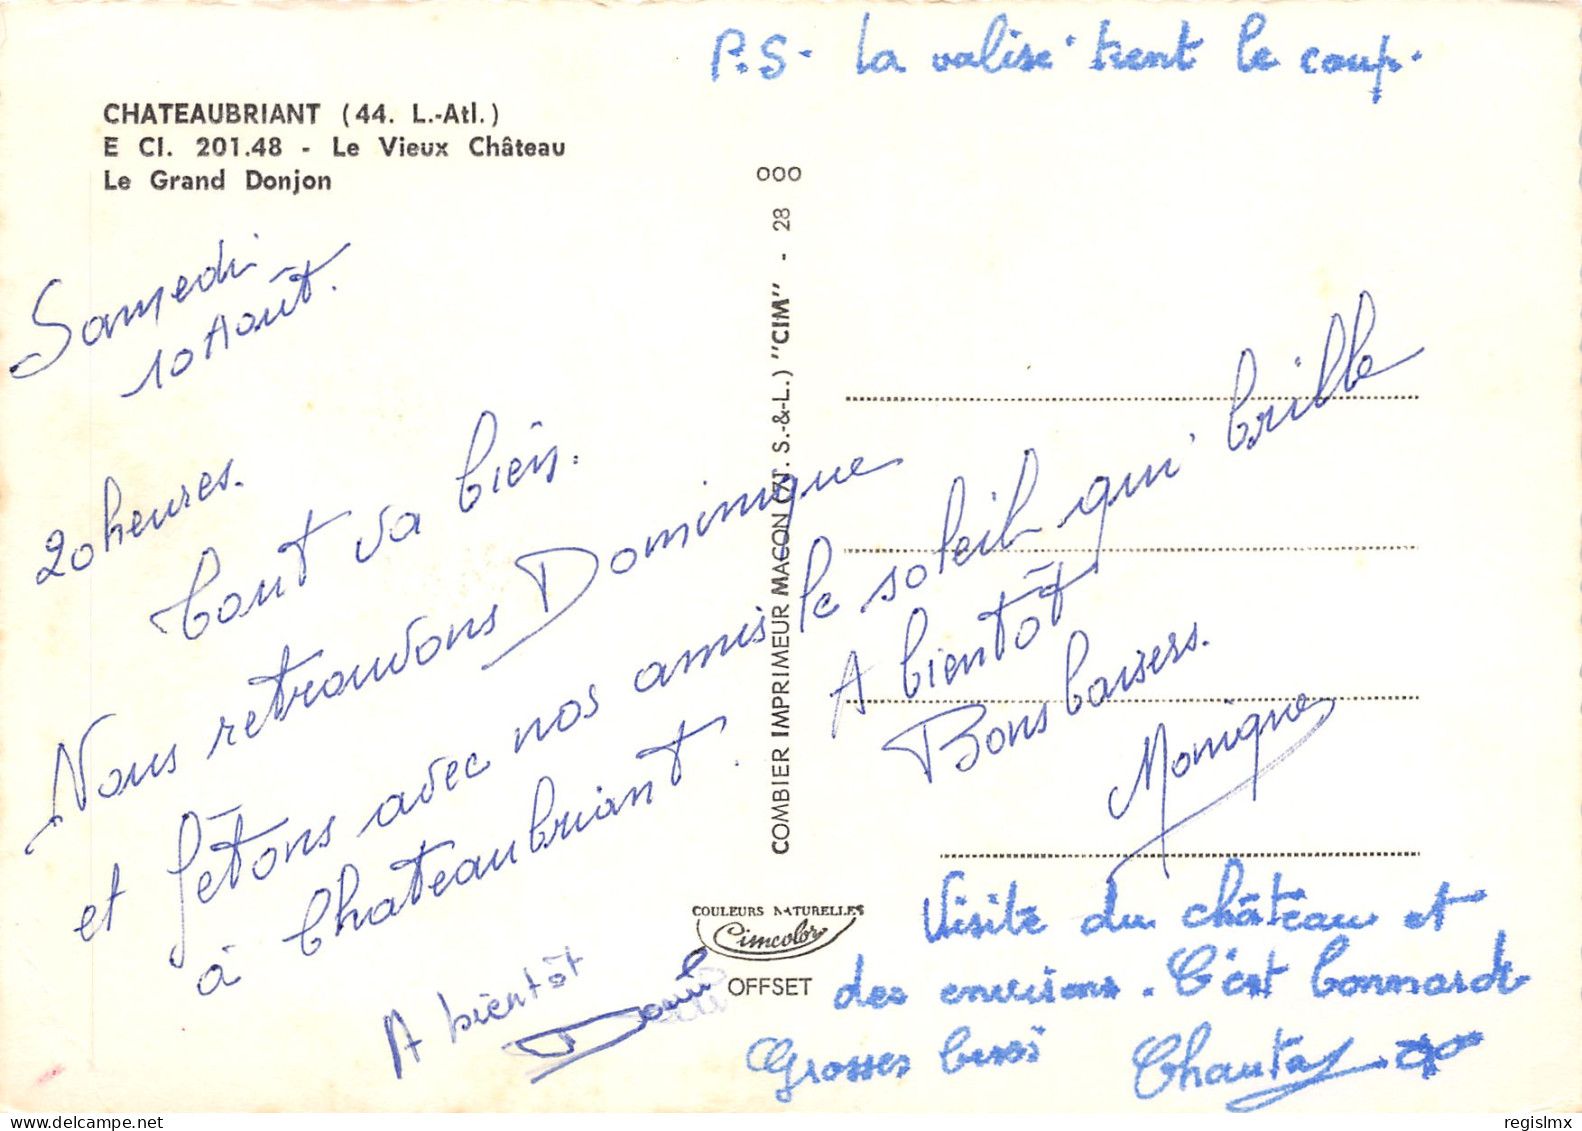 P.S- La valise tient le coup.
CHATEAUBRIANT (44. L.-Atl.)
E CI. 201.48 - Le Vieux Château
Le Grand Donjon
Samedi
10 Août.
20 heures.
Tout va bien.
Nous retrouvons Dominique
et fêtons avec nos amis le soleil qui brille
à Chateaubriant.
A bientôt
Bons baisers.
Monique
A bientôt
COMBIER IMPRIMEUR MACON (71. S.-&-L.) "CIM" - 28
000
COULEURS NATURELLES
Cimcolor
OFFSET
Visite du château et
des environs. C'est bonnard
Grosses bises
Chantal
regislmx